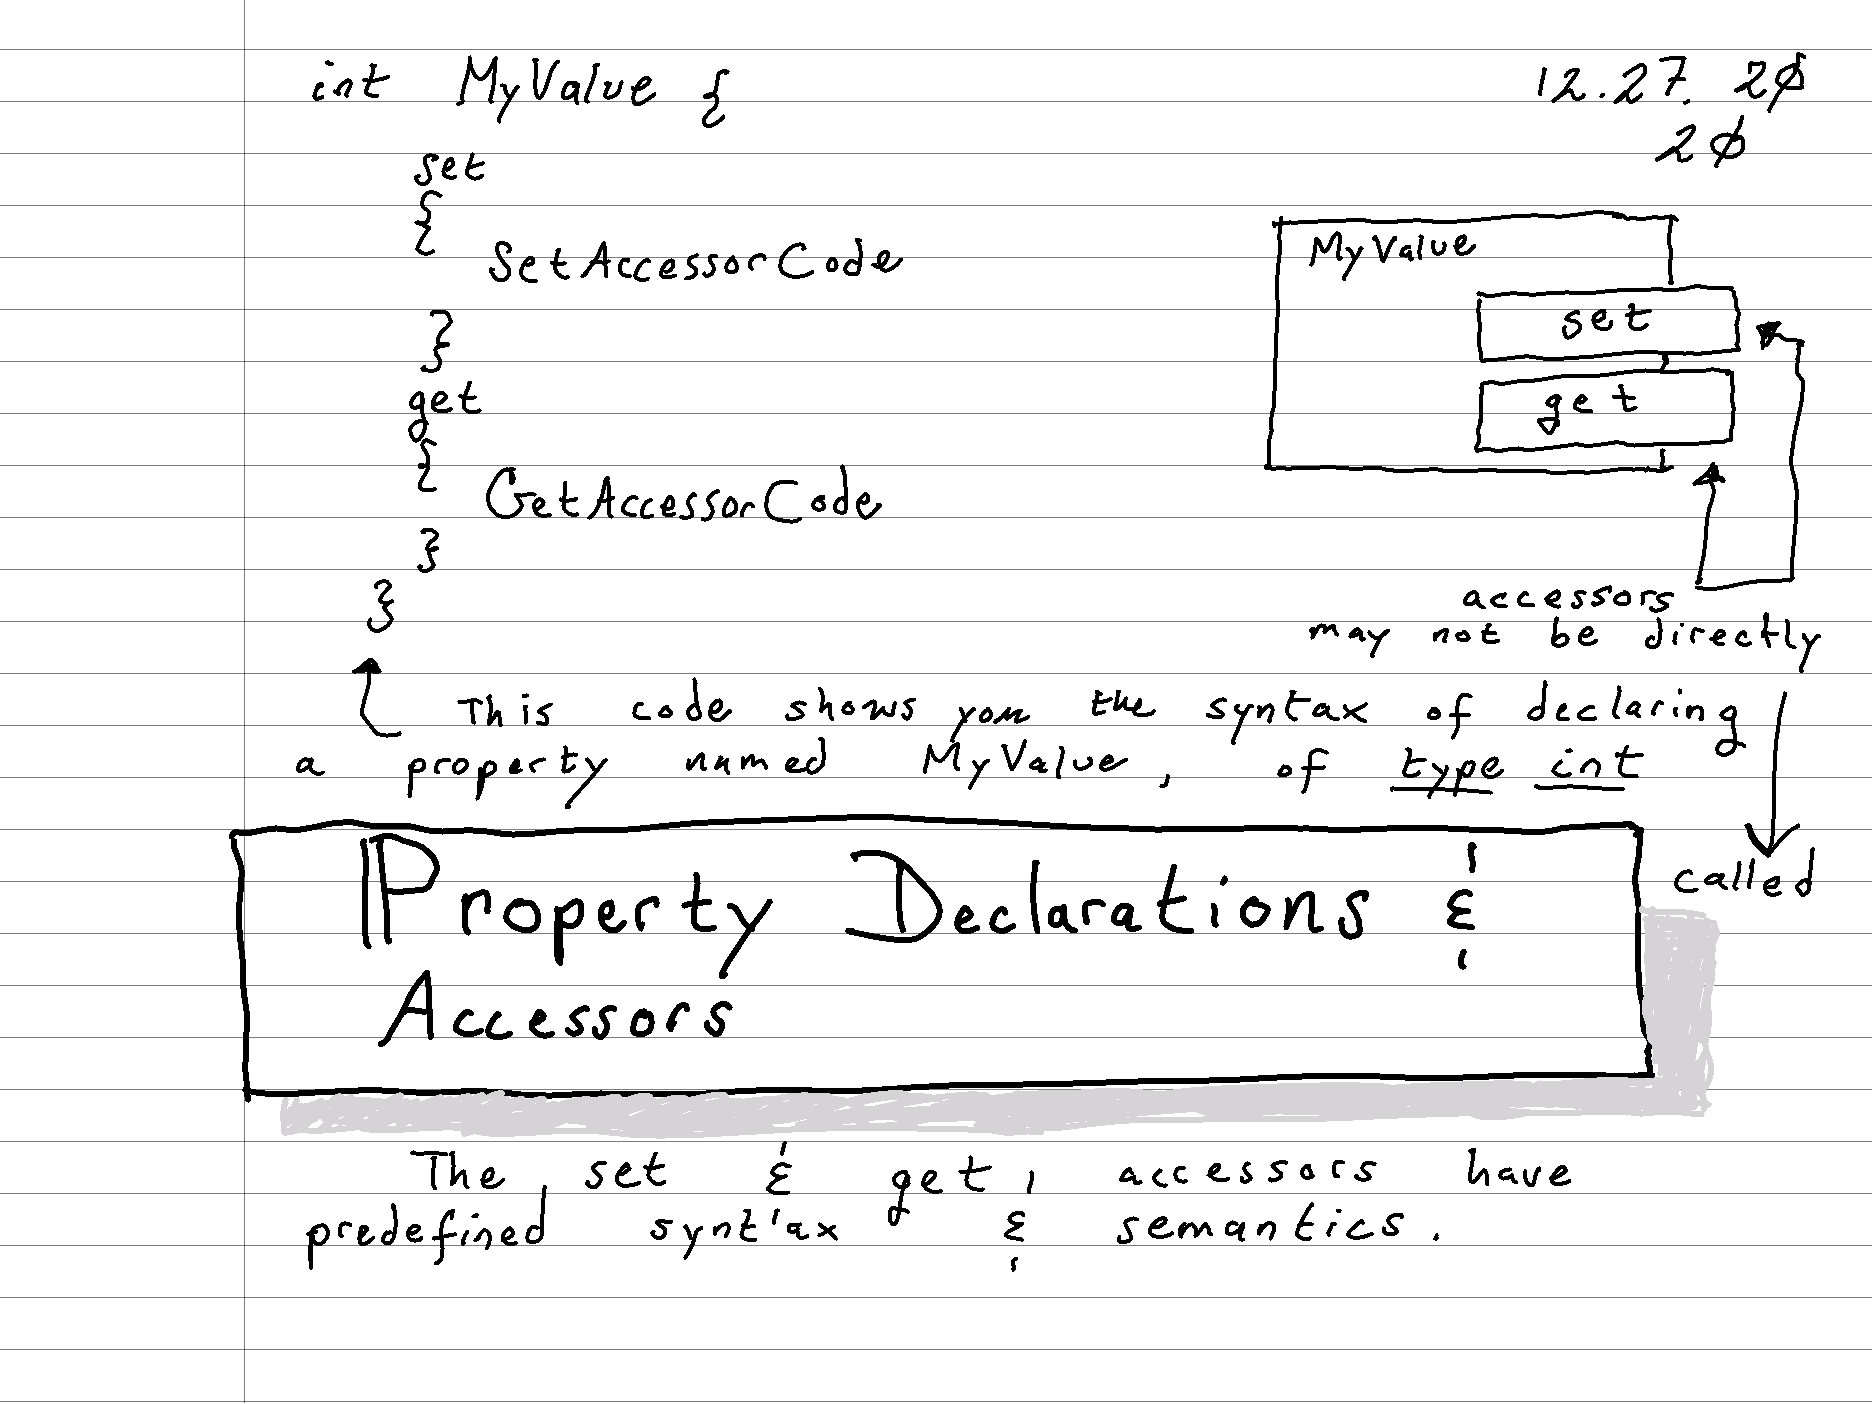 int MyValue {
12.27.20
20
set
{
SetAccessorCode
}
get
{
GetAccessorCode
}
}
MyValue
set
get
accessors
may not be directly
called
This code shows you the syntax of declaring
a property named MyValue, of type int
Property Declarations &
Accessors
The set & get accessors have
predefined syntax & semantics.